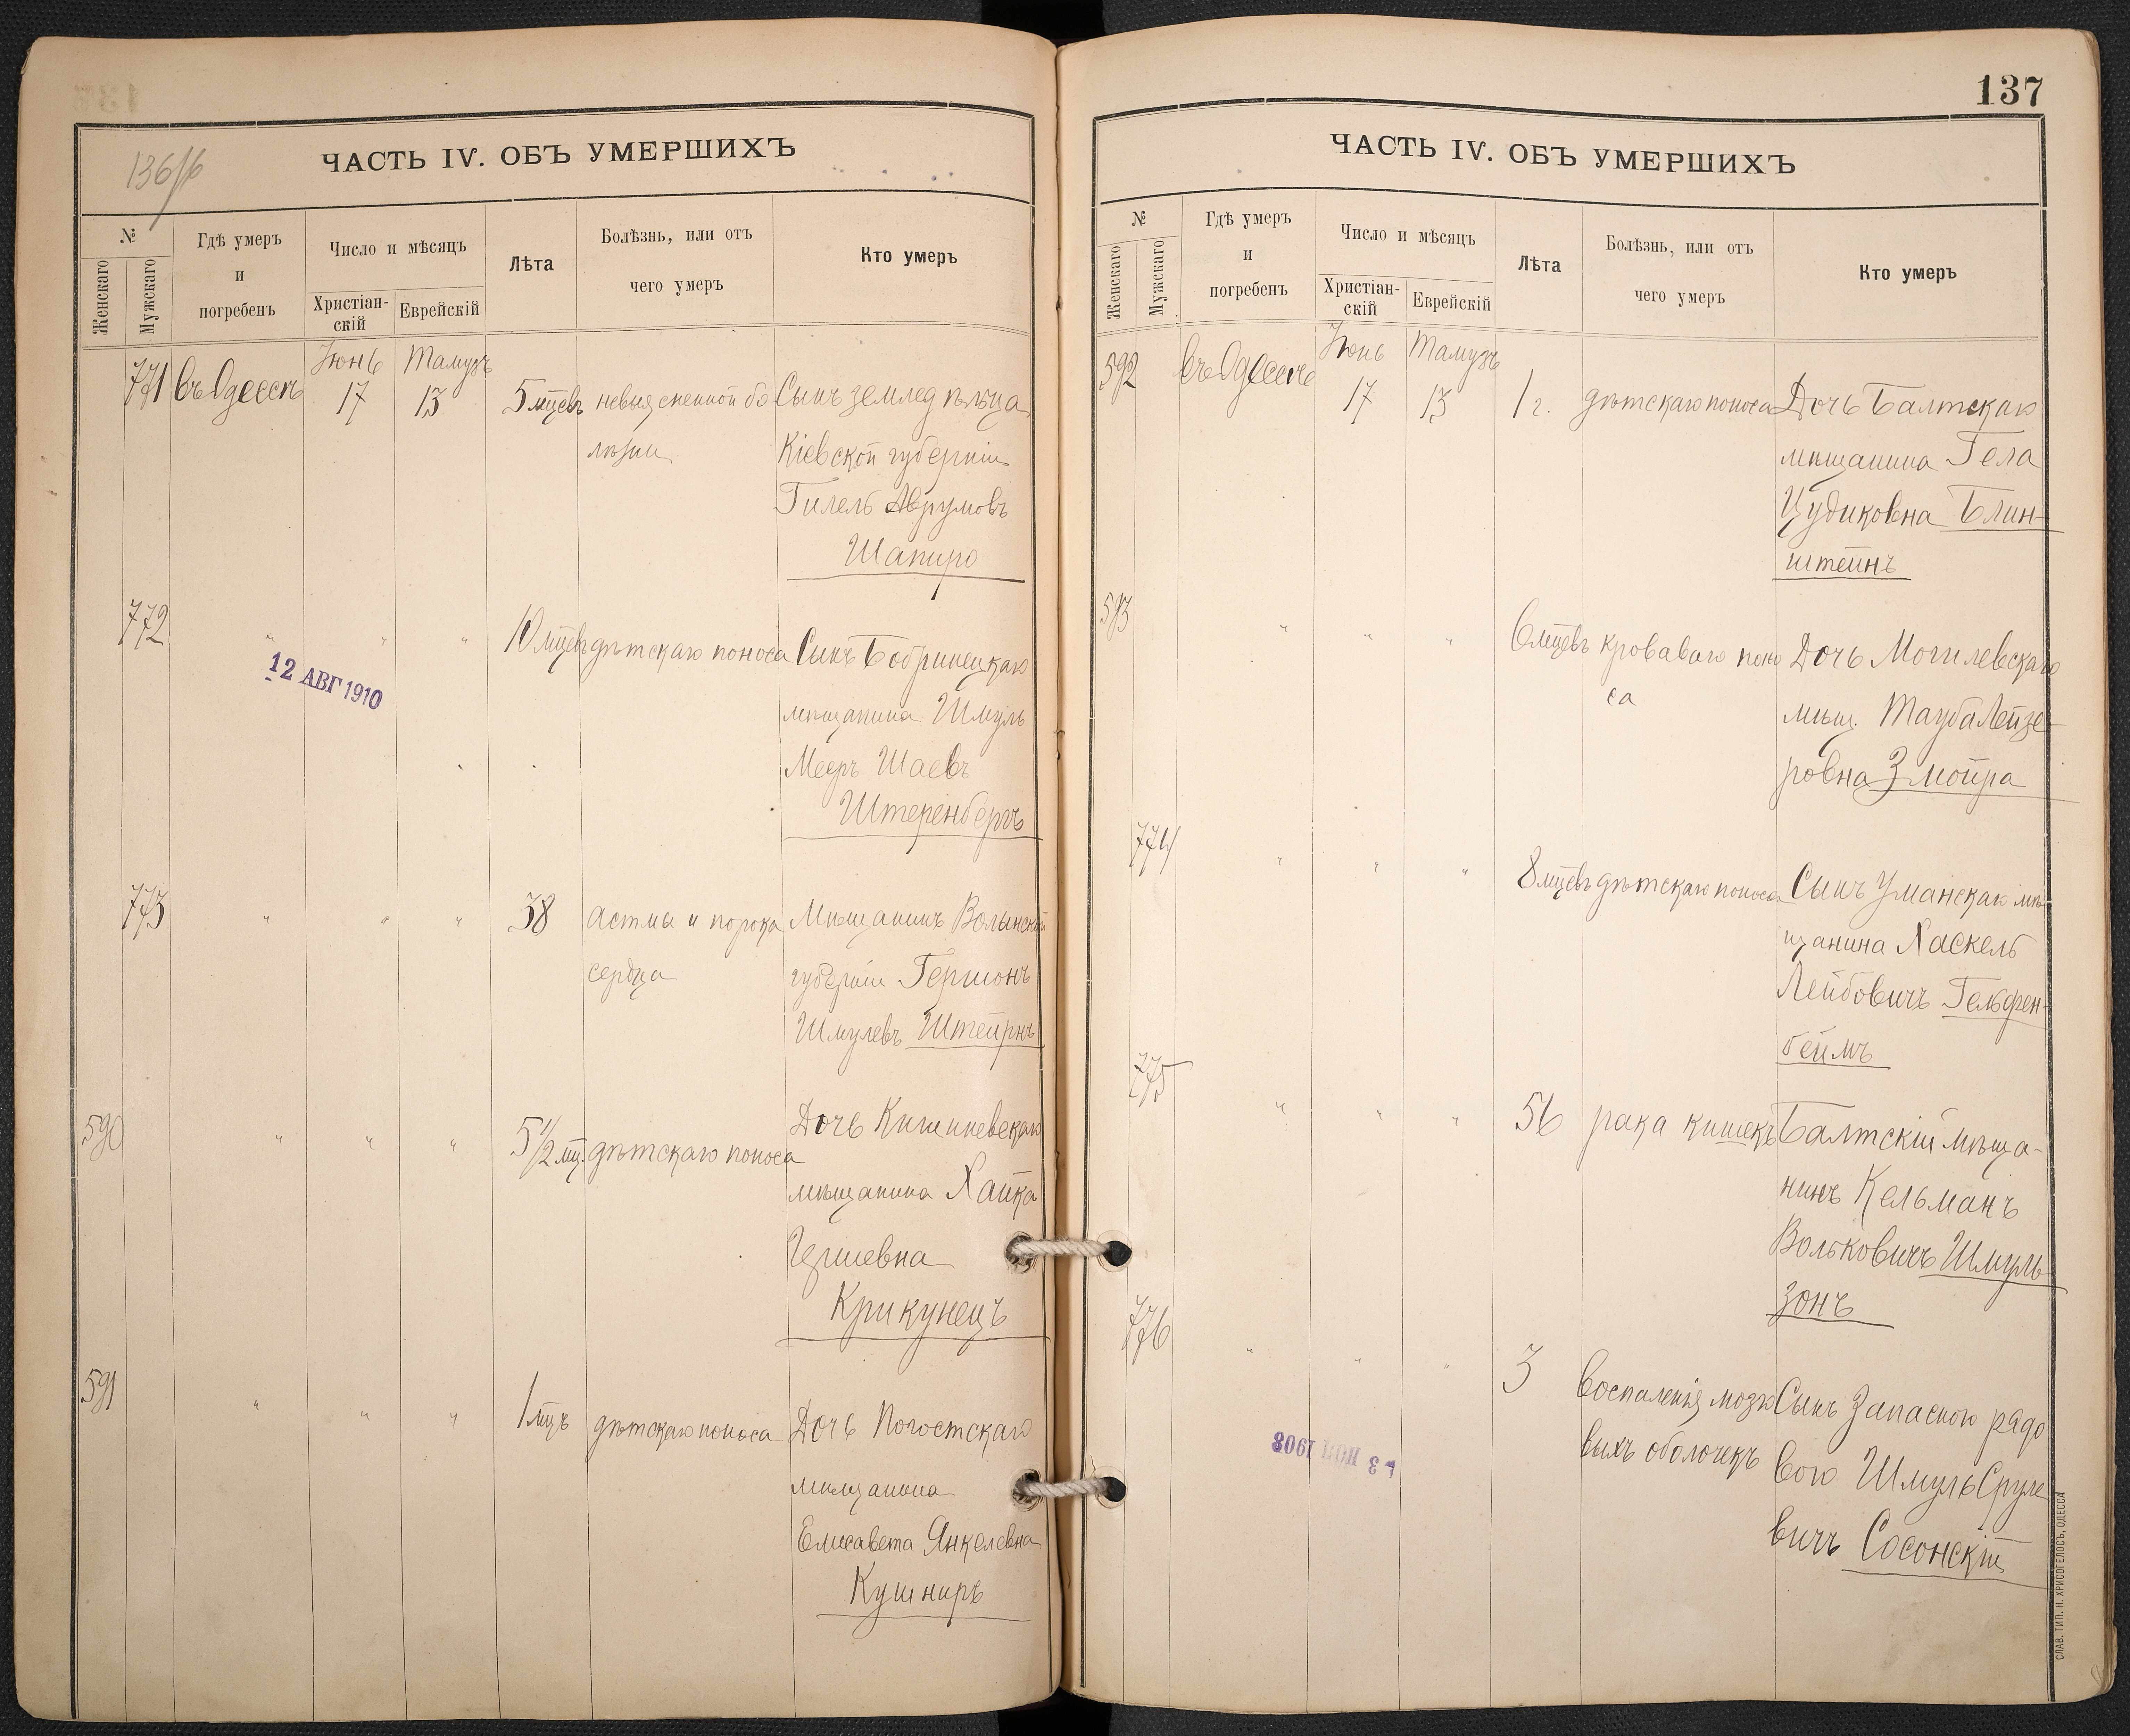 136/б
ЧАСТЬ IV. ОБЪ УМЕРШИХЪ
№
Женскаго
Мужскаго
Гдѣ умеръ
и
погребенъ
Число и мѣсяцъ
Христіан-
скій
Еврейскій
Лѣта
Болѣзнь, или отъ
чего умеръ
Кто умеръ
Іюнь Тамузъ
771 въ Одессѣ 17 13 5 мцевъ невыясненной бо Сынъ земледѣльца
лѣзни Кіевской губерніи
Гилель Аврумовъ
Шапиро
772 " " " 10 мцевъ дѣтскаго поноса Сынъ Бобринецкаго
12 АВГ 1910
мѣщанина Шмуль
Мееръ Шаевъ
Штеренбергъ
773 " " " 38 астмы и порока Мѣщанинъ Волынской
сердца губерніи Гершонъ
Шмулевъ Штейрнъ
590 " " " 5 1/2 мц. дѣтскаго поноса Дочь Кишиневскаго
мѣщанина Хайка
Гершевна
Крикунецъ
591 " " " 1 мцъ дѣтскаго поноса Дочь Погостскаго
мѣщанина
Елисавета Янкелевна
Кушниръ
137
ЧАСТЬ IV. ОБЪ УМЕРШИХЪ
№
Женскаго
Мужскаго
Гдѣ умеръ
и
погребенъ
Число и мѣсяцъ
Христіан-
скій
Еврейскій
Лѣта
Болѣзнь, или отъ
чего умеръ
Кто умеръ
Іюнь Тамузъ
592 въ Одессѣ 17 13 1 г. дѣтскаго поноса Дочь Балтскаго
мѣщанина Гела
Цудиковна Блин-
штейнъ
593 " " " 6 мцевъ кроваваго поно Дочь Могилевскаго
са мѣщ. Тауба Лейзе-
ровна Змойра
774 " " " 8 мцевъ дѣтскаго поноса Сынъ Уманскаго мѣ-
щанина Хаскель
Лейбовичъ Гельфен-
беймъ
775 " " " 56 рака кишекъ Балтскій мѣща-
нинъ Кельманъ
Вольковичъ Шмуль-
зонъ
776 " " " 3 воспаленія мозго Сынъ Запасного рядо
выхъ оболочекъ вого Шмуль Сруле
вичъ Сосонскій
-3 НОЯ 1908
СЛАВ. ТИП. Н. ХРИСОГЕЛОСЪ, ОДЕССА